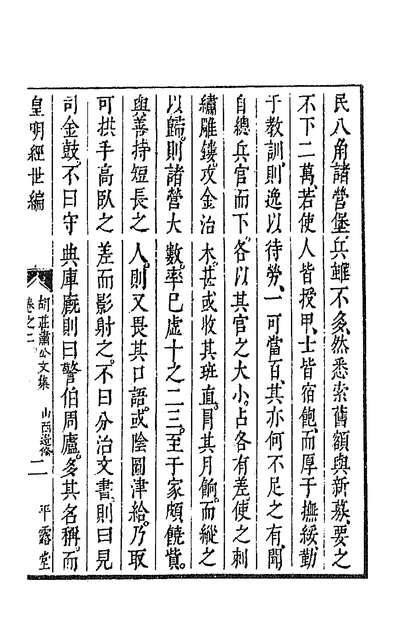 民八角諸營堡兵雖不多然悉索舊額與新募要之
不下二萬若使人皆授甲士皆宿飽而厚于撫綏勤
于教訓則逸以待勞一可當百其亦何不足之有聞
自總兵官而下各以其官之大小占各有差使之刺
繡雕鏤攻金治木甚或收其班直肎其月餉而縱之
以歸則諸營大數率已虛十之二三至于家頗饒貲
與善持短長之人則又畏其口語或陰圖津給乃取
可拱手高臥之差而影射之不曰分治文書則曰見
司金鼓不曰守典庫廐則曰警伯周廬多其名稱而
皇明經世編
胡莊肅公文集
卷之二
山西邊俻
二
平露堂